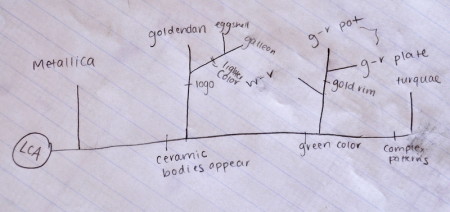 goldendan eggshell
galleon
g-r pot
Metallica
g-r plate
lighter
color
w-r
logo
gold rim
turquae
LCA
ceramic
bodies appear
green color
complex
patterns